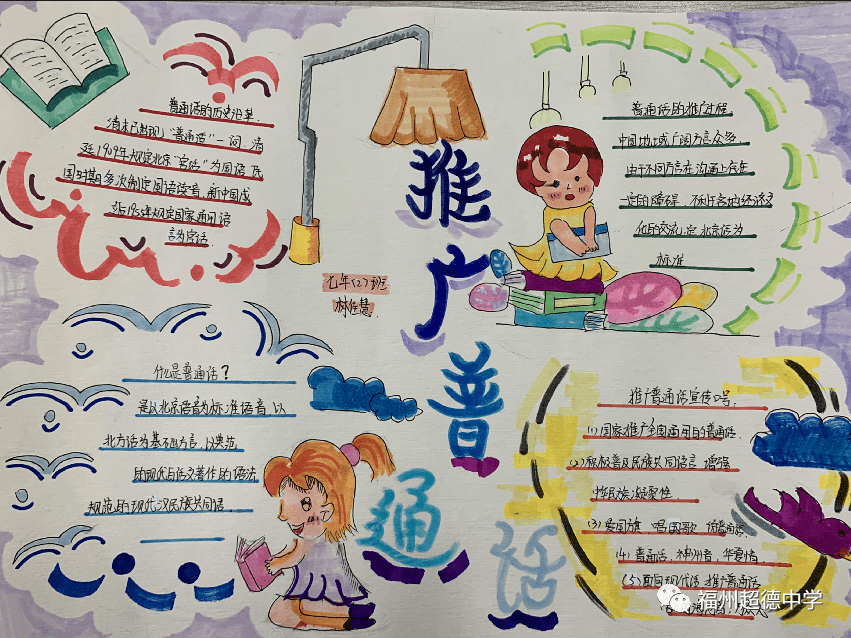 普通话的历史沿革
清末已出现"普通话"一词，清
廷1909年规定北京"官话"为国语，民
国时期多次制定国语读音，新中国成
立后1955年规定国家通用语
言为官话
推广普通话
七年(2)班
林佳慧
普通话的推广过程
中国地域广阔方言众多
由于不同方言在沟通上存在
一定的障碍 不利于各地经济文
化的交流，定北京话为
标准
什么是普通话？
是以北京语音为标准语音，以
北方话为基础方言，以典范
的现代白话文著作的语法
规范的现代汉民族共同语
推广普通话宣传口号
(1) 国家推广全国通用的普通话
(2) 积极普及民族共同语言 增强
中华民族凝聚性
(3) 爱国旗 唱国歌 说普通话
(4) 普通话，神州音，华夏情
(5) 面向现代化 推广普通话
福州超德中学